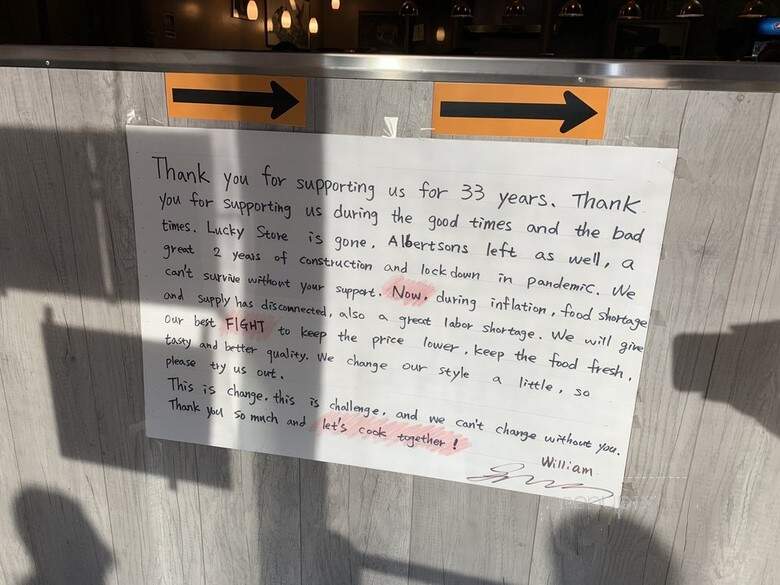 Thank you for supporting us for 33 years. Thank
you for supporting us during the good times and the bad
times. Lucky Store is gone. Albertsons left as well, a
great 2 years of construction and lock down in pandemic. We
can't survive without your support. Now, during inflation, food shortage
and supply has disconnected, also a great labor shortage. We will give
our best FIGHT to keep the price lower, keep the food fresh,
tasty and better quality. We change our style a little, so
please try us out.
This is change. this is challenge. and we can't change without you.
Thank you so much and let's cook together!
William